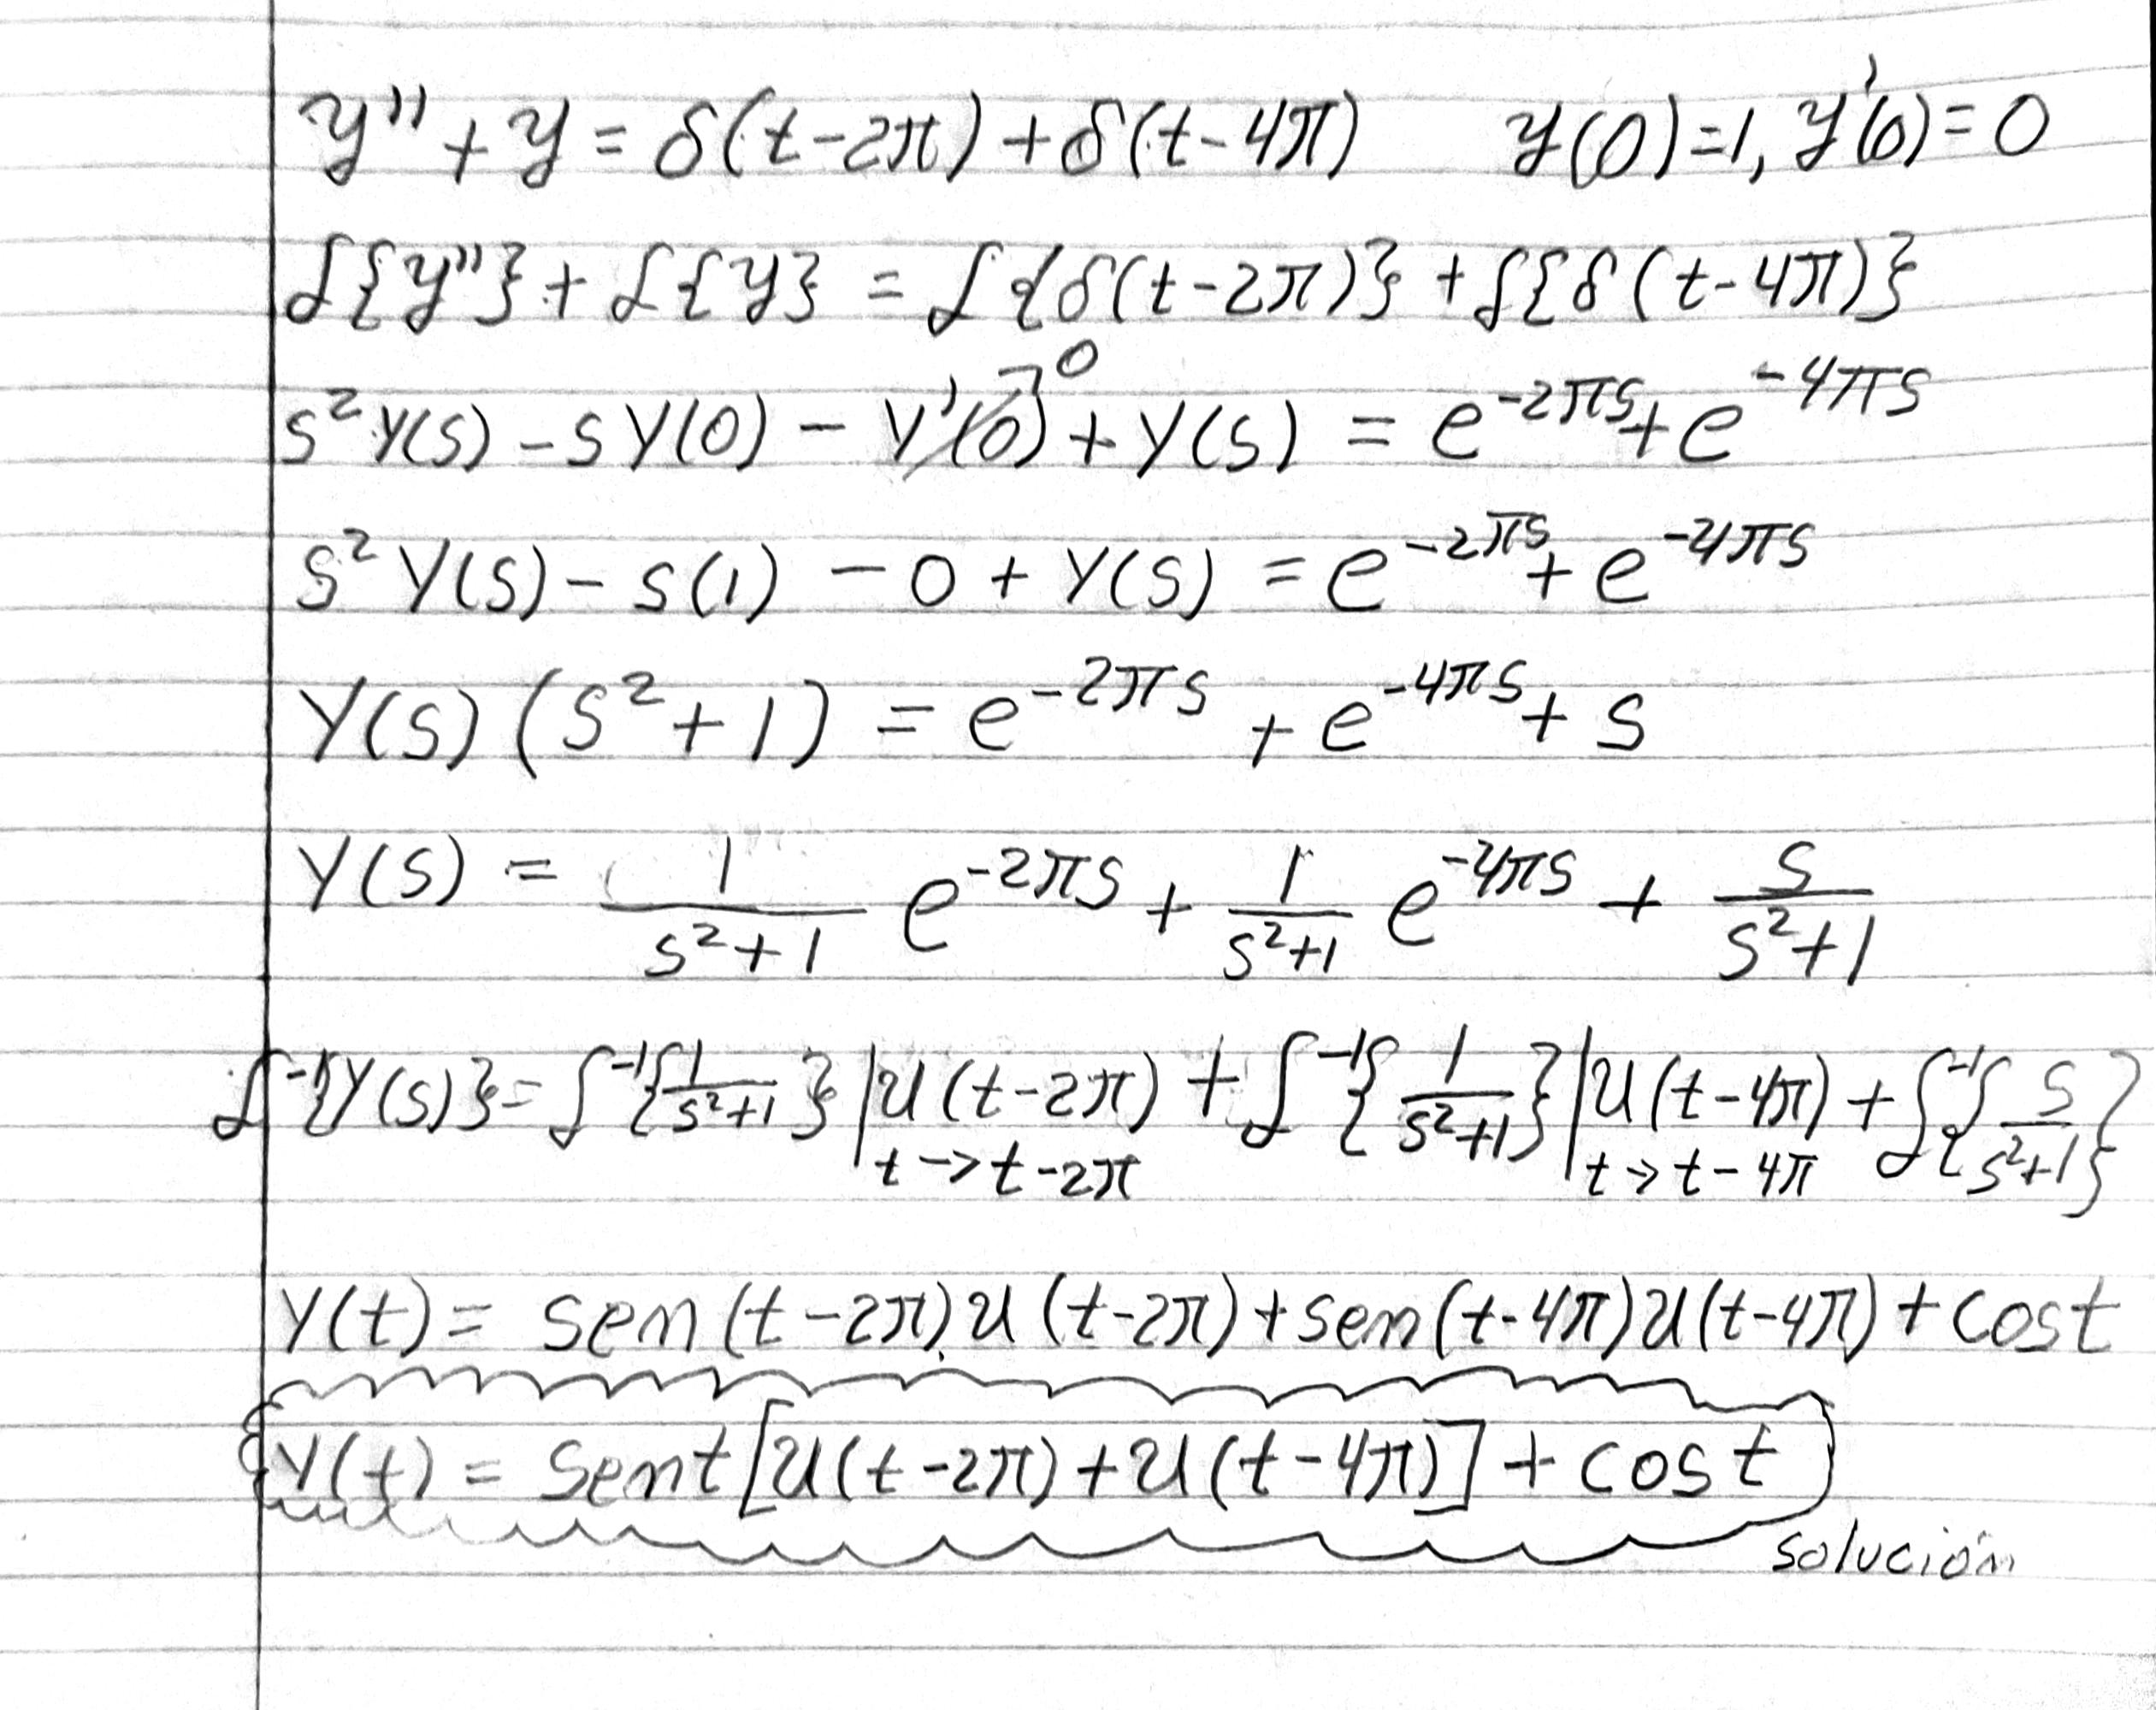 y'' + y = δ(t-2π) + δ(t-4π) y(0)=1, y'(0)=0
ℒ{y''} + ℒ{y} = ℒ{δ(t-2π)} + ℒ{δ(t-4π)}
s²Y(s) - sY(0) - Y'(0)→0 + Y(s) = e^{-2πs} + e^{-4πs}
s²Y(s) - s(1) - 0 + Y(s) = e^{-2πs} + e^{-4πs}
Y(s)(s²+1) = e^{-2πs} + e^{-4πs} + s
Y(s) = 1/(s²+1) e^{-2πs} + 1/(s²+1) e^{-4πs} + s/(s²+1)
ℒ⁻¹{Y(s)} = ℒ⁻¹{1/(s²+1)}|_{t→t-2π} U(t-2π) + ℒ⁻¹{1/(s²+1)}|_{t→t-4π} U(t-4π) + ℒ⁻¹{s/(s²+1)}
Y(t) = sen(t-2π)U(t-2π) + sen(t-4π)U(t-4π) + cost
Y(t) = sent[U(t-2π) + U(t-4π)] + cost
solución